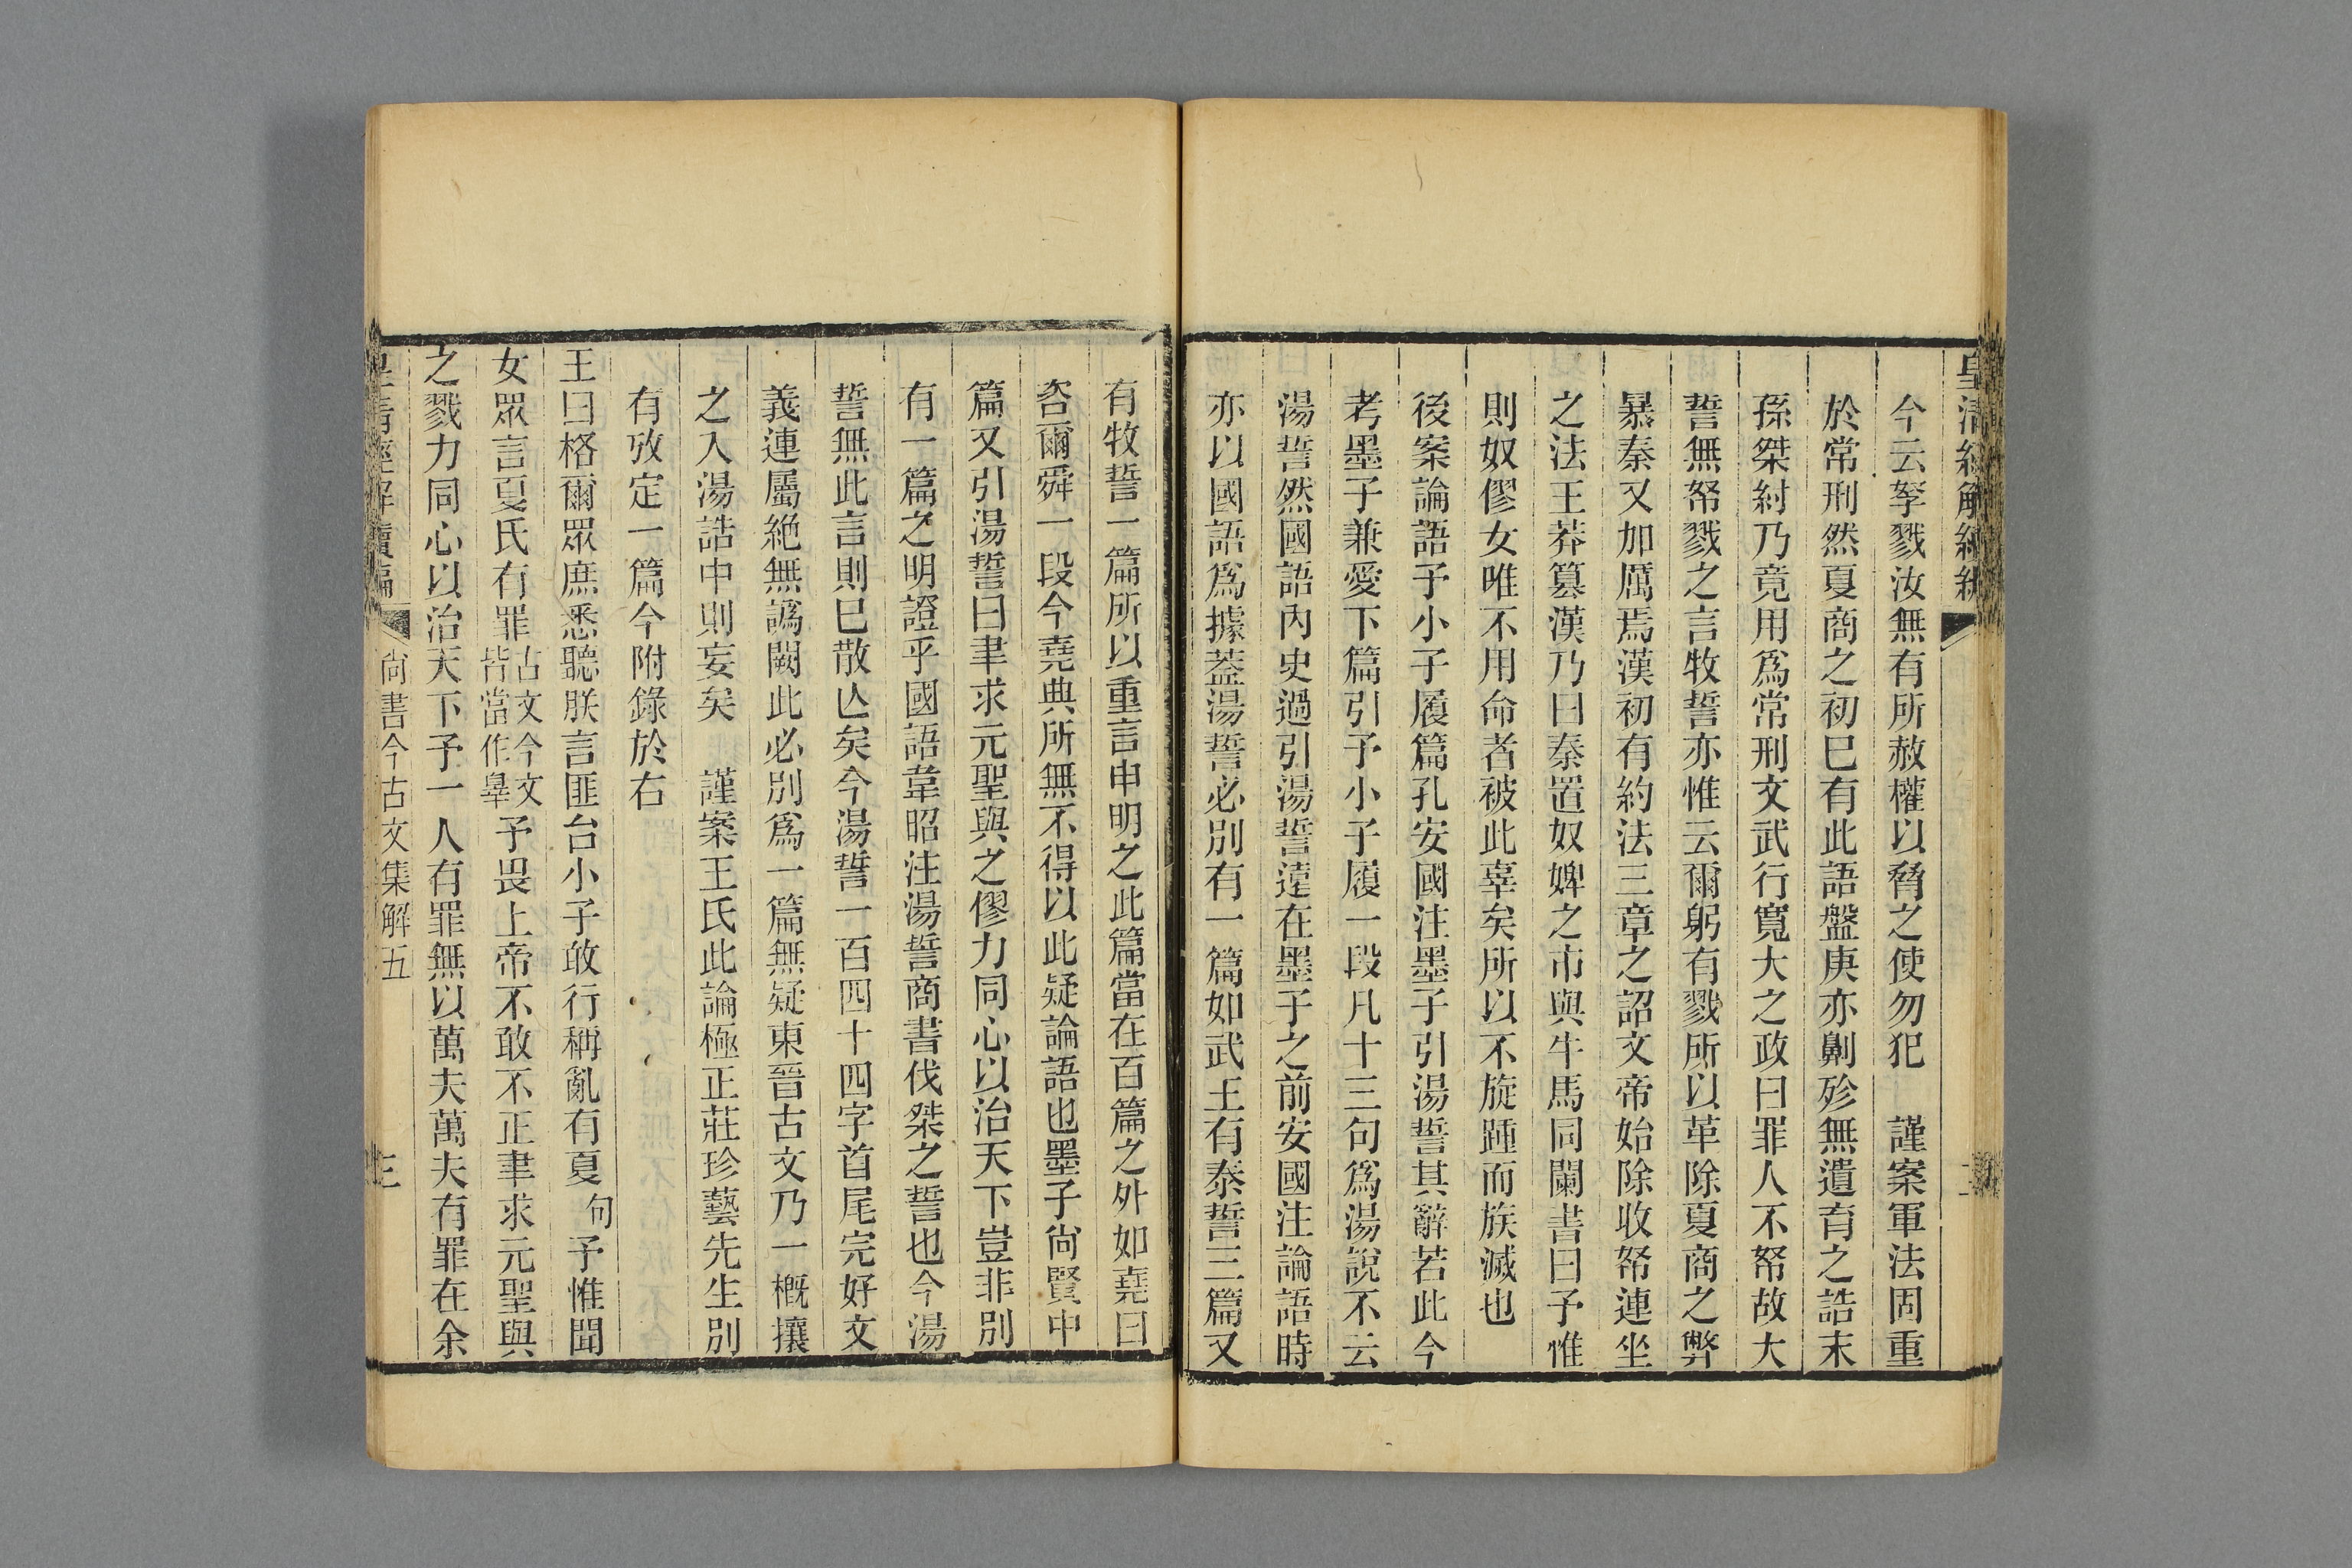 皇清經解續編
今云孥戮汝無有所赦權以脅之使勿犯　謹案軍法固重
於常刑然夏商之初巳有此語盤庚亦劓殄無遺育之誥末
孫桀紂乃竟用爲常刑文武行寬大之政曰罪人不帑故大
誓無帑戮之言牧誓亦惟云爾躬有戮所以革除夏商之弊
暴秦又加厲焉漢初有約法三章之詔文帝始除收帑連坐
之法王莽篡漢乃曰秦置奴婢之市與牛馬同闌書曰予惟
則奴僇女唯不用命者被此辜矣所以不旋踵而族滅也
後案論語予小子履篇孔安國注墨子引湯誓其辭若此今
考墨子兼愛下篇引予小子履一段凡十三句爲湯說不云
湯誓然國語內史過引湯誓遠在墨子之前安國注論語時
亦以國語爲據葢湯誓必別有一篇如武王有泰誓三篇又
有牧誓一篇所以重言申明之此篇當在百篇之外如堯曰
咨爾舜一段今堯典所無不得以此疑論語也墨子尙賢中
篇又引湯誓曰聿求元聖與之僇力同心以治天下豈非別
有一篇之明證乎國語韋昭注湯誓商書伐桀之誓也今湯
誓無此言則巳散亾矣今湯誓一百四十四字首尾完好文
義連屬絶無譌闕此必別爲一篇無疑東晉古文乃一概攘
之入湯誥中則妄矣　謹案王氏此論極正莊珍藝先生別
有攷定一篇今附錄於右
王曰格爾眾庶悉聽朕言匪台小子敢行稱亂有夏句予惟聞
女眾言夏氏有罪古文今文皆當作辠予畏上帝不敢不正聿求元聖與
之戮力同心以治天下予一人有罪無以萬夫萬夫有罪在余
皇清經解續編　尙書今古文集解五　三